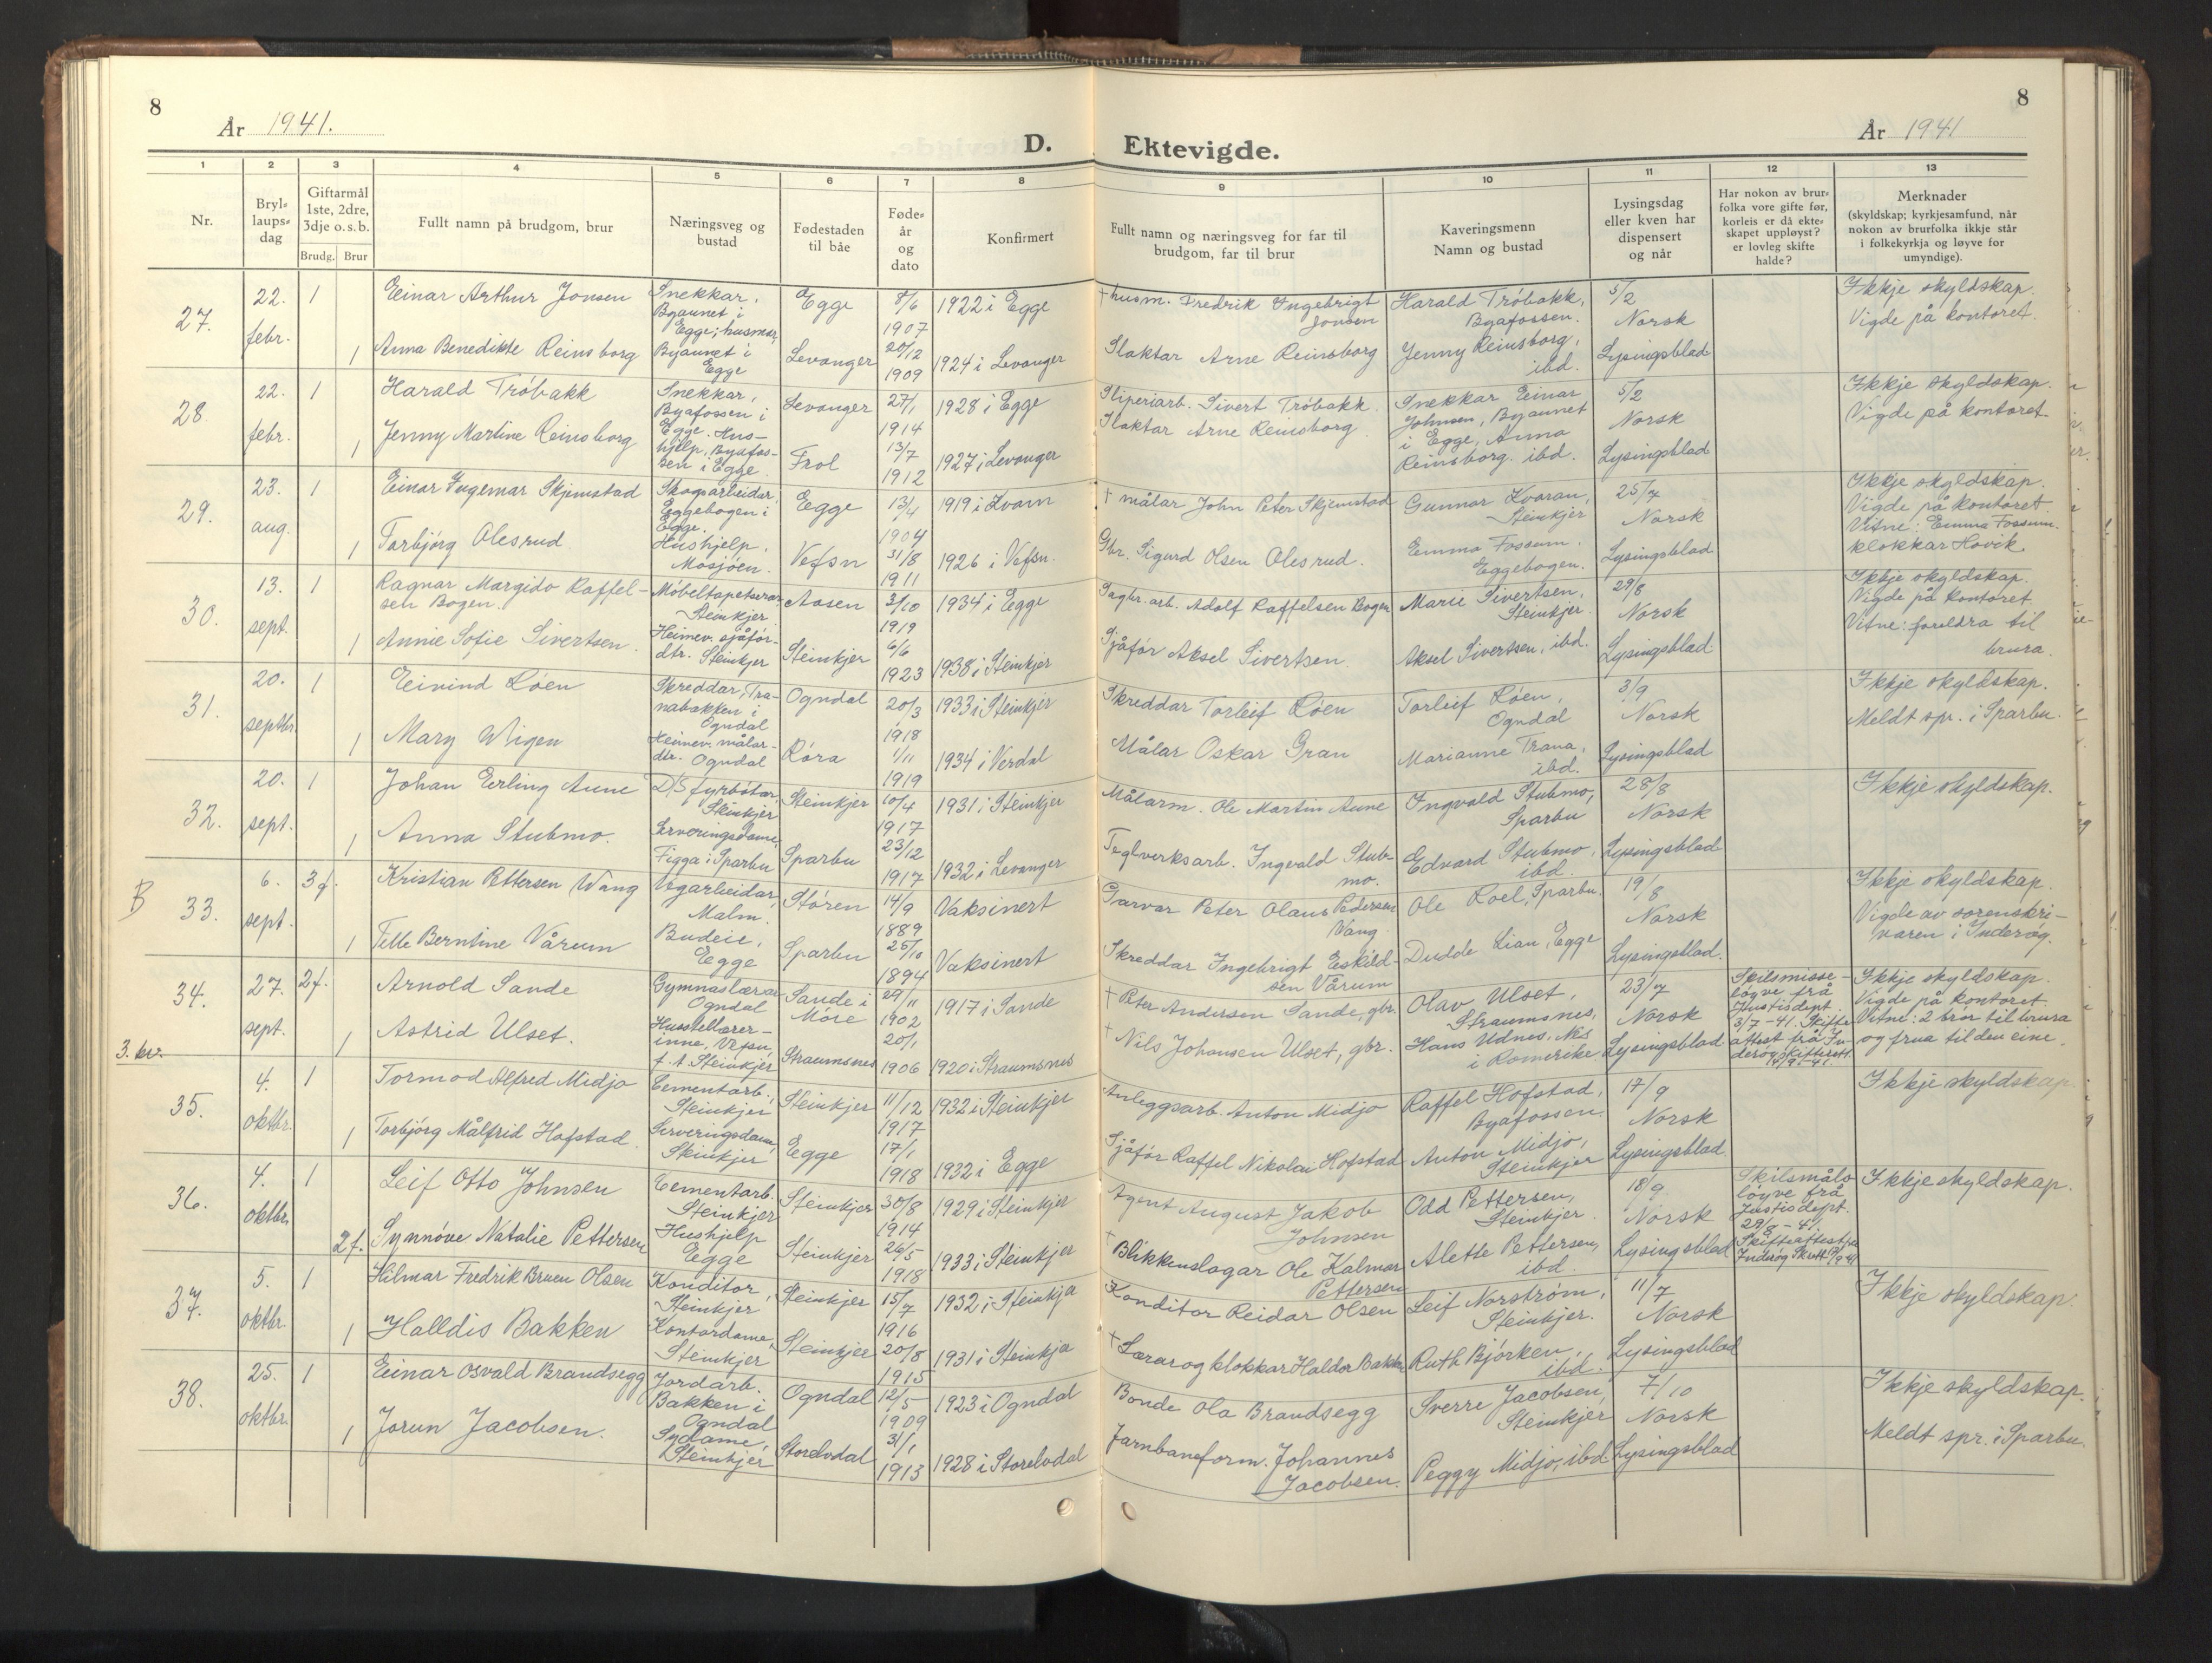 8
År 1941.
D.
Ektevigde.
År 1941
8
1
2
3
4
5
6
7
8
9
10
11
12
13
Nr.
Bryl-
laups-
dag
Giftarmål
1ste, 2dre,
3dje o.s.b.
Brudg.
Brur
Fullt namn på brudgom, brur
Næringsveg og
bustad
Fødestaden
til båe
Føde-
år
og
dato
Konfirmert
Fullt namn og næringsveg for far til
brudgom, far til brur
Kaveringsmenn
Namn og bustad
Lysingsdag
eller kven har
dispensert
og når
Har nokon av brur-
folka vore gifte før,
korleis er då ekte-
skapet uppløyst?
er lovleg skifte
halde?
Merknader
(skyldskap; kyrkjesamfund, når
nokon av brurfolka ikkje står
i folkekyrkja og løyve for
umyndige).
27.
22.
febr.
1
Einar Arthur Jonsen
Snekkar,
Byaunet i
Egge; husmor,
Egge
8/6
1907
1922 i Egge
† husm. Fredrik Ingebrigt
Jonsen
Harald Trøbakk,
Byafossen.
5/2
Norsk
Lysingsblad
Ikkje skyldskap.
Vigde på kontoret.
1
Anna Benedikte Reinsborg
Byaunet i
Egge
Levanger
20/12
1909
1924 i Levanger
Slaktar Arne Reinsborg
Jenny Reinsborg,
ibd.
28
22.
febr.
1
Harald Trøbakk
Snekkar,
Byafossen i
Egge. Hus-
Levanger
27/1
1914
1928 i Egge
Sliperiarb. Sivert Trøbakk.
Snekkar Einar
Johnsen, Byaunet
i Egge, Anna
Reinsborg. ibd.
5/2
Norsk
Lysingsblad
Ikkje skyldskap.
Vigde på kontoret
1
Jenny Martine Reinsborg
hjelp, Byafos-
sen i Egge.
Frol
13/7
1912
1927 i Levanger
Slaktar Arne Reinsborg
29.
23.
aug.
1
Einar Ingemar Skjemstad
Skogsarbeidar,
Eggebogen i
Egge.
Egge
13/4
1904
1919 i Kvam
† målar John Peter Skjemstad
Gunnar Kvaran,
Steinkjer
25/7
Norsk
Lysingsblad
Ikkje skyldskap.
Vigde på kontoret.
Vitne: Emma Fossum.
klokkar Hovik.
1
Torbjørg Olesrud.
Hushjelp.
Mosjøen.
Vefsn
31/8
1911
1926 i Vefsn.
Gbr. Sigurd Olsen Olesrud.
Emma Fossum.
Eggebogen.
30.
13.
sept.
1
Ragnar Margido Raffel-
sen Bogen.
Møbeltapetserar
Steinkjer
Aasen
3/10
1919
1934 i Egge
Sagbr. arb. Adolf Raffelsen Bogen
Marie Sivertsen,
Steinkjer
29/8
Norsk
Lysingsblad
Ikkje skyldskap.
Vigde på kontoret.
Vitne: foreldra til
brura.
1
Annie Sofie Sivertsen.
Heimev. sjåfør-
dtr. Steinkjer
Steinkjer
6/6
1923
1938 i Steinkjer
Sjåfør Aksel Sivertsen.
Aksel Sivertsen, ibd.
31.
20.
septbr.
1
Eivind Løen
Skreddar, Tra-
nabakken i
Ogndal
Ogndal
20/3
1918
1933 i Steinkjer
Skreddar Torleif Løen
Torleif Løen,
Ogndal
3/9
Norsk
Lysingsblad
Ikkje skyldskap.
Meldt spr. i Sparbu.
1
Mary Wigen
Heimev. målar-
dtr. Ogndal
Røra
1/11
1919
1934 i Verdal
Målar Oskar Gran
Marianne Trana,
ibd.
32.
20.
sept.
1
Johan Erling Aune
D/S fyrbøtar,
Steinkjer
Steinkjer
10/4
1917
1931 i Steinkjer
Målarm. Ole Martin Aune
Ingvald Stubmo,
Sparbu
28/8
Norsk
Lysingsblad
Ikkje skyldskap.
1
Anna Stubmo.
Serveringsdame,
Figga i Sparbu
Sparbu
23/12
1917
1932 i Levanger
Teglverksarb. Ingvald Stub-
mo.
Edvard Stubmo,
ibd.
B
33.
6.
sept.
3g.
Kristian Pettersen Wang
Vegarbeidar,
Malm.
Støren
14/9
1889
Vaksinert
Garvar Peter Olaus Pedersen
Vang
Ole Roel, Sparbu.
19/8
Norsk
Lysingsblad.
Ikkje skyldskap.
Vigde av sorenskri-
varen i Inderøy.
1
Tette Berntine Vårum
Budeie,
Egge
Sparbu
25/10
1894
Vaksinert
Skreddar Ingebrigt Eskild-
sen Vårum
Dudde Lian, Egge
34.
27.
sept.
2f.
Arnold Sande
Gymnaslærar
Ogndal
Sande i
Møre
29/11
1902
1917 i Sande
† Peter Andersen Sande, gbr.
Olav Ulset,
Straumsnes,
23/7
Norsk
Lysingsblad
Skilsmisse-
løyve frå
Justisdept.
3/7-41. Skifte-
attest frå In-
derøy skifterett.
Ikkje skyldskap.
Vigde på kontoret.
Vitne: 2 brør til brura
og frua til den eine.
1
Astrid Ulset.
Husstellærer-
inne, Vefsn,
f. t. Steinkjer
Straumsnes
20/1
1906
1920 i Straumsnes
† Nils Johansen Ulset, gbr.
Hans Udnes, Nes
i Romerike
3. kv.
35.
4.
oktbr.
1
Tormod Alfred Midjo
Cementarb.,
Steinkjer
Steinkjer
11/12
1917
1932 i Steinkjer
Anleggsarb. Anton Midjo
Raffel Hofstad,
Byafossen.
17/9
Norsk
Lysingsblad.
Ikkje skyldskap.
1
Torbjørg Målfrid Hofstad.
Serveringsdame,
Steinkjer
Egge
17/1
1918
1932 i Egge
Sjåfør Raffel Nikolai Hofstad
Anton Midjo,
Steinkjer
36.
4.
oktbr.
1
Leif Otto Johnsen
Cementarb.
Steinkjer
Steinkjer
30/8
1914
1929 i Steinkjer
Agent August Jakob
Johnsen
Odd Pettersen,
Steinkjer.
18/9
Norsk
Lysingsblad
Skilsmåls
løyve frå
Justisdept.
29/8-41.
Skifteattest frå
Ikkje skyldskap.
2f.
Synnøve Natalie Pettersen
Hushjelp
Egge
Steinkjer
26/5
1918
1933 i Steinkjer
† Blikkenslagar Ole Kalmar
Pettersen
Alette Pettersen,
ibd.
37.
5.
oktbr.
1
Hilmar Fredrik Bruen Olsen
Konditor,
Steinkjer
Steinkjer
15/7
1916
1932 i Steinkjer
Konditor Reidar Olsen
Leif Norstrøm,
Steinkjer.
11/7
Norsk
Lysingsblad
Ikkje skyldskap.
1
Halldis Bakken
Kontordame,
Steinkjer
Steinkjer
20/8
1915
1931 i Steinkjer
† Lærar og klokkar Haldor Bakken
Ruth Bjørken,
ibd.
38.
25.
oktbr.
1
Einar Osvald Brandsegg
Jordarb.
Bakken i
Ogndal
Ogndal
12/5
1909
1923 i Ogndal
Bonde Ola Brandsegg
Sverre Jacobsen,
Steinkjer
7/10
Norsk
Lysingsblad
Ikkje skyldskap.
Meldt spr. i Sparbu.
1
Jorun Jacobsen.
Sydame,
Steinkjer
Storelvdal
31/1
1913
1928 i Storelvdal
Jarnbaneform. Johannes
Jacobsen.
Peggy Midjo, ibd.